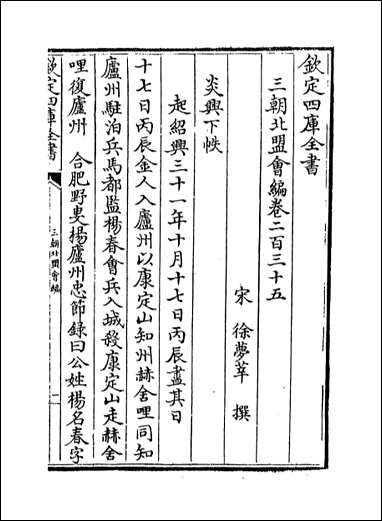 欽定四庫全書
三朝北盟會編卷二百三十五
宋 徐夢莘 撰
炎興下帙
起紹興三十一年十月十七日丙辰盡其日
十七日丙辰金人入廬州以康定山知州赫舎哩同知
廬州駐泊兵馬都監楊春會兵入城殺康定山走赫舎
哩復廬州 合肥野叟楊廬州忠節錄曰公姓楊名春字
欽定四庫全書
三朝北盟會編
一